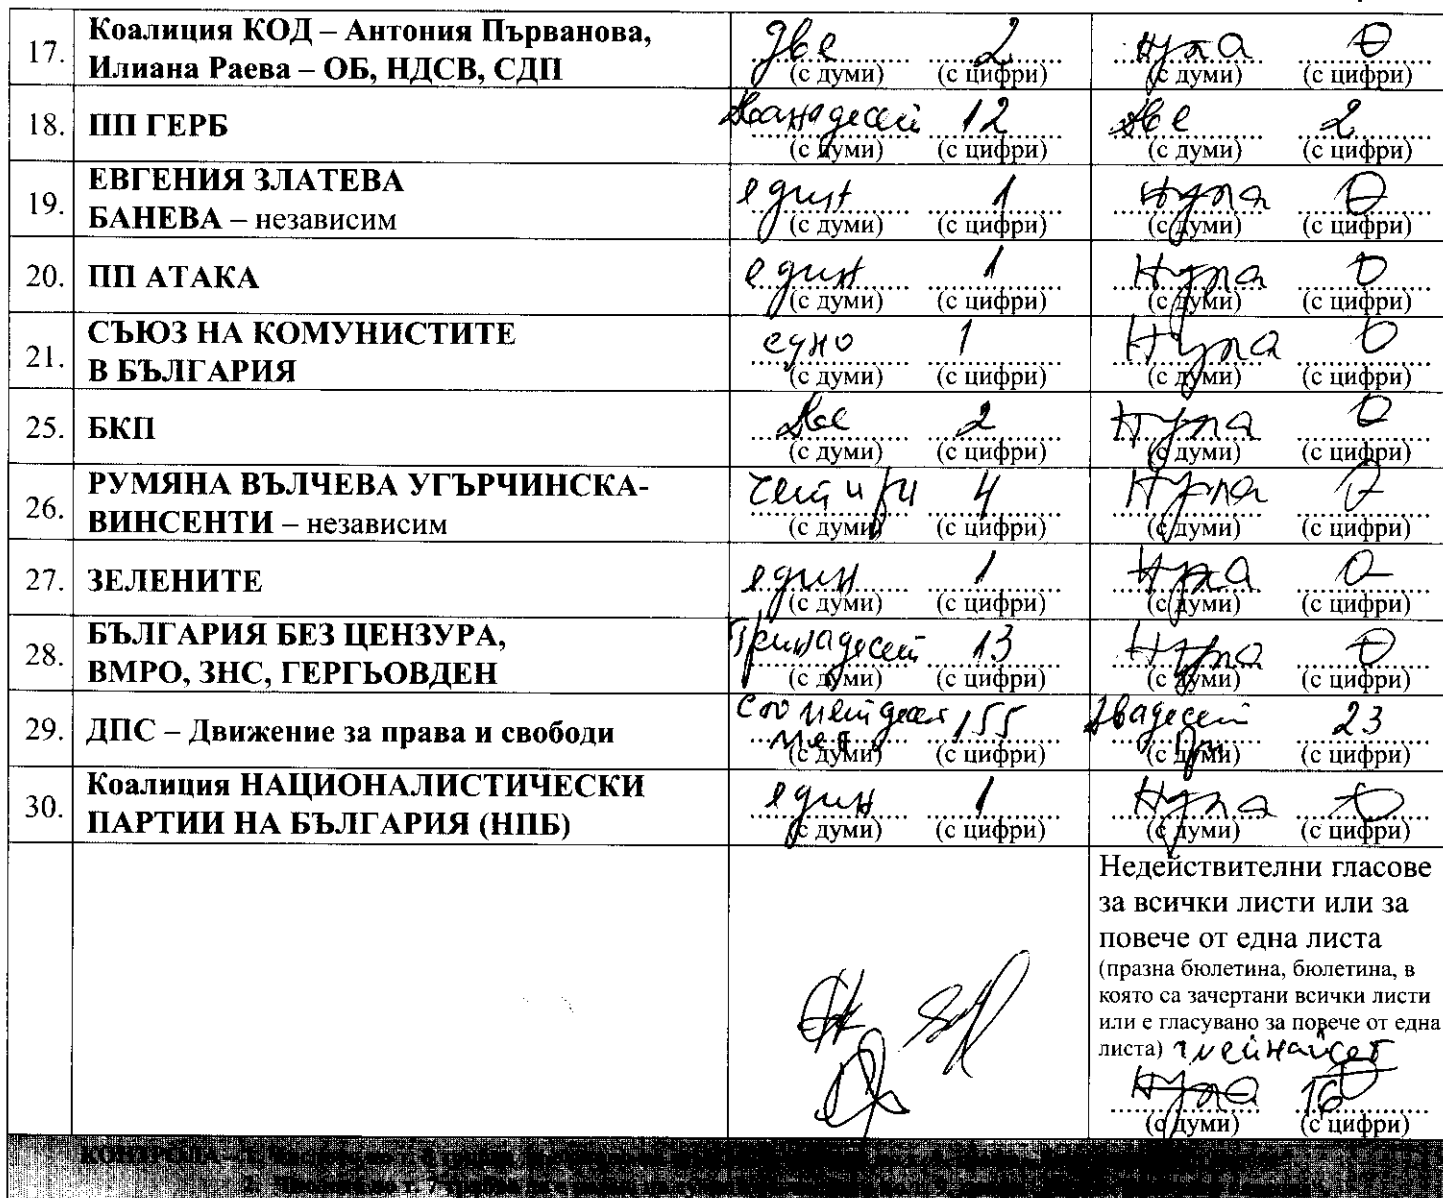 17. Коалиция КОД – Антония Първанова, Илиана Раева – ОБ, НДСВ, СДП
две 2 нула 0
(с думи) (с цифри) (с думи) (с цифри)
18. ПП ГЕРБ
дванадесет 12 две 2
(с думи) (с цифри) (с думи) (с цифри)
19. ЕВГЕНИЯ ЗЛАТЕВА БАНЕВА – независим
един 1 нула 0
(с думи) (с цифри) (с думи) (с цифри)
20. ПП АТАКА
един 1 нула 0
(с думи) (с цифри) (с думи) (с цифри)
21. СЪЮЗ НА КОМУНИСТИТЕ В БЪЛГАРИЯ
едно 1 нула 0
(с думи) (с цифри) (с думи) (с цифри)
25. БКП
две 2 нула 0
(с думи) (с цифри) (с думи) (с цифри)
26. РУМЯНА ВЪЛЧЕВА УГЪРЧИНСКА-ВИНСЕНТИ – независим
четири 4 нула 0
(с думи) (с цифри) (с думи) (с цифри)
27. ЗЕЛЕНИТЕ
един 1 нула 0
(с думи) (с цифри) (с думи) (с цифри)
28. БЪЛГАРИЯ БЕЗ ЦЕНЗУРА, ВМРО, ЗНС, ГЕРГЬОВДЕН
тринадесет 13 нула 0
(с думи) (с цифри) (с думи) (с цифри)
29. ДПС – Движение за права и свободи
сто петдесет пет 155 двадесет три 23
(с думи) (с цифри) (с думи) (с цифри)
30. Коалиция НАЦИОНАЛИСТИЧЕСКИ ПАРТИИ НА БЪЛГАРИЯ (НПБ)
един 1 нула 0
(с думи) (с цифри) (с думи) (с цифри)
Недействителни гласове
за всички листи или за
повече от една листа
(празна бюлетина, бюлетина, в
която са зачертани всички листи
или е гласувано за повече от една
листа)
нула 16
(с думи) (с цифри)
КОНТРОЛА